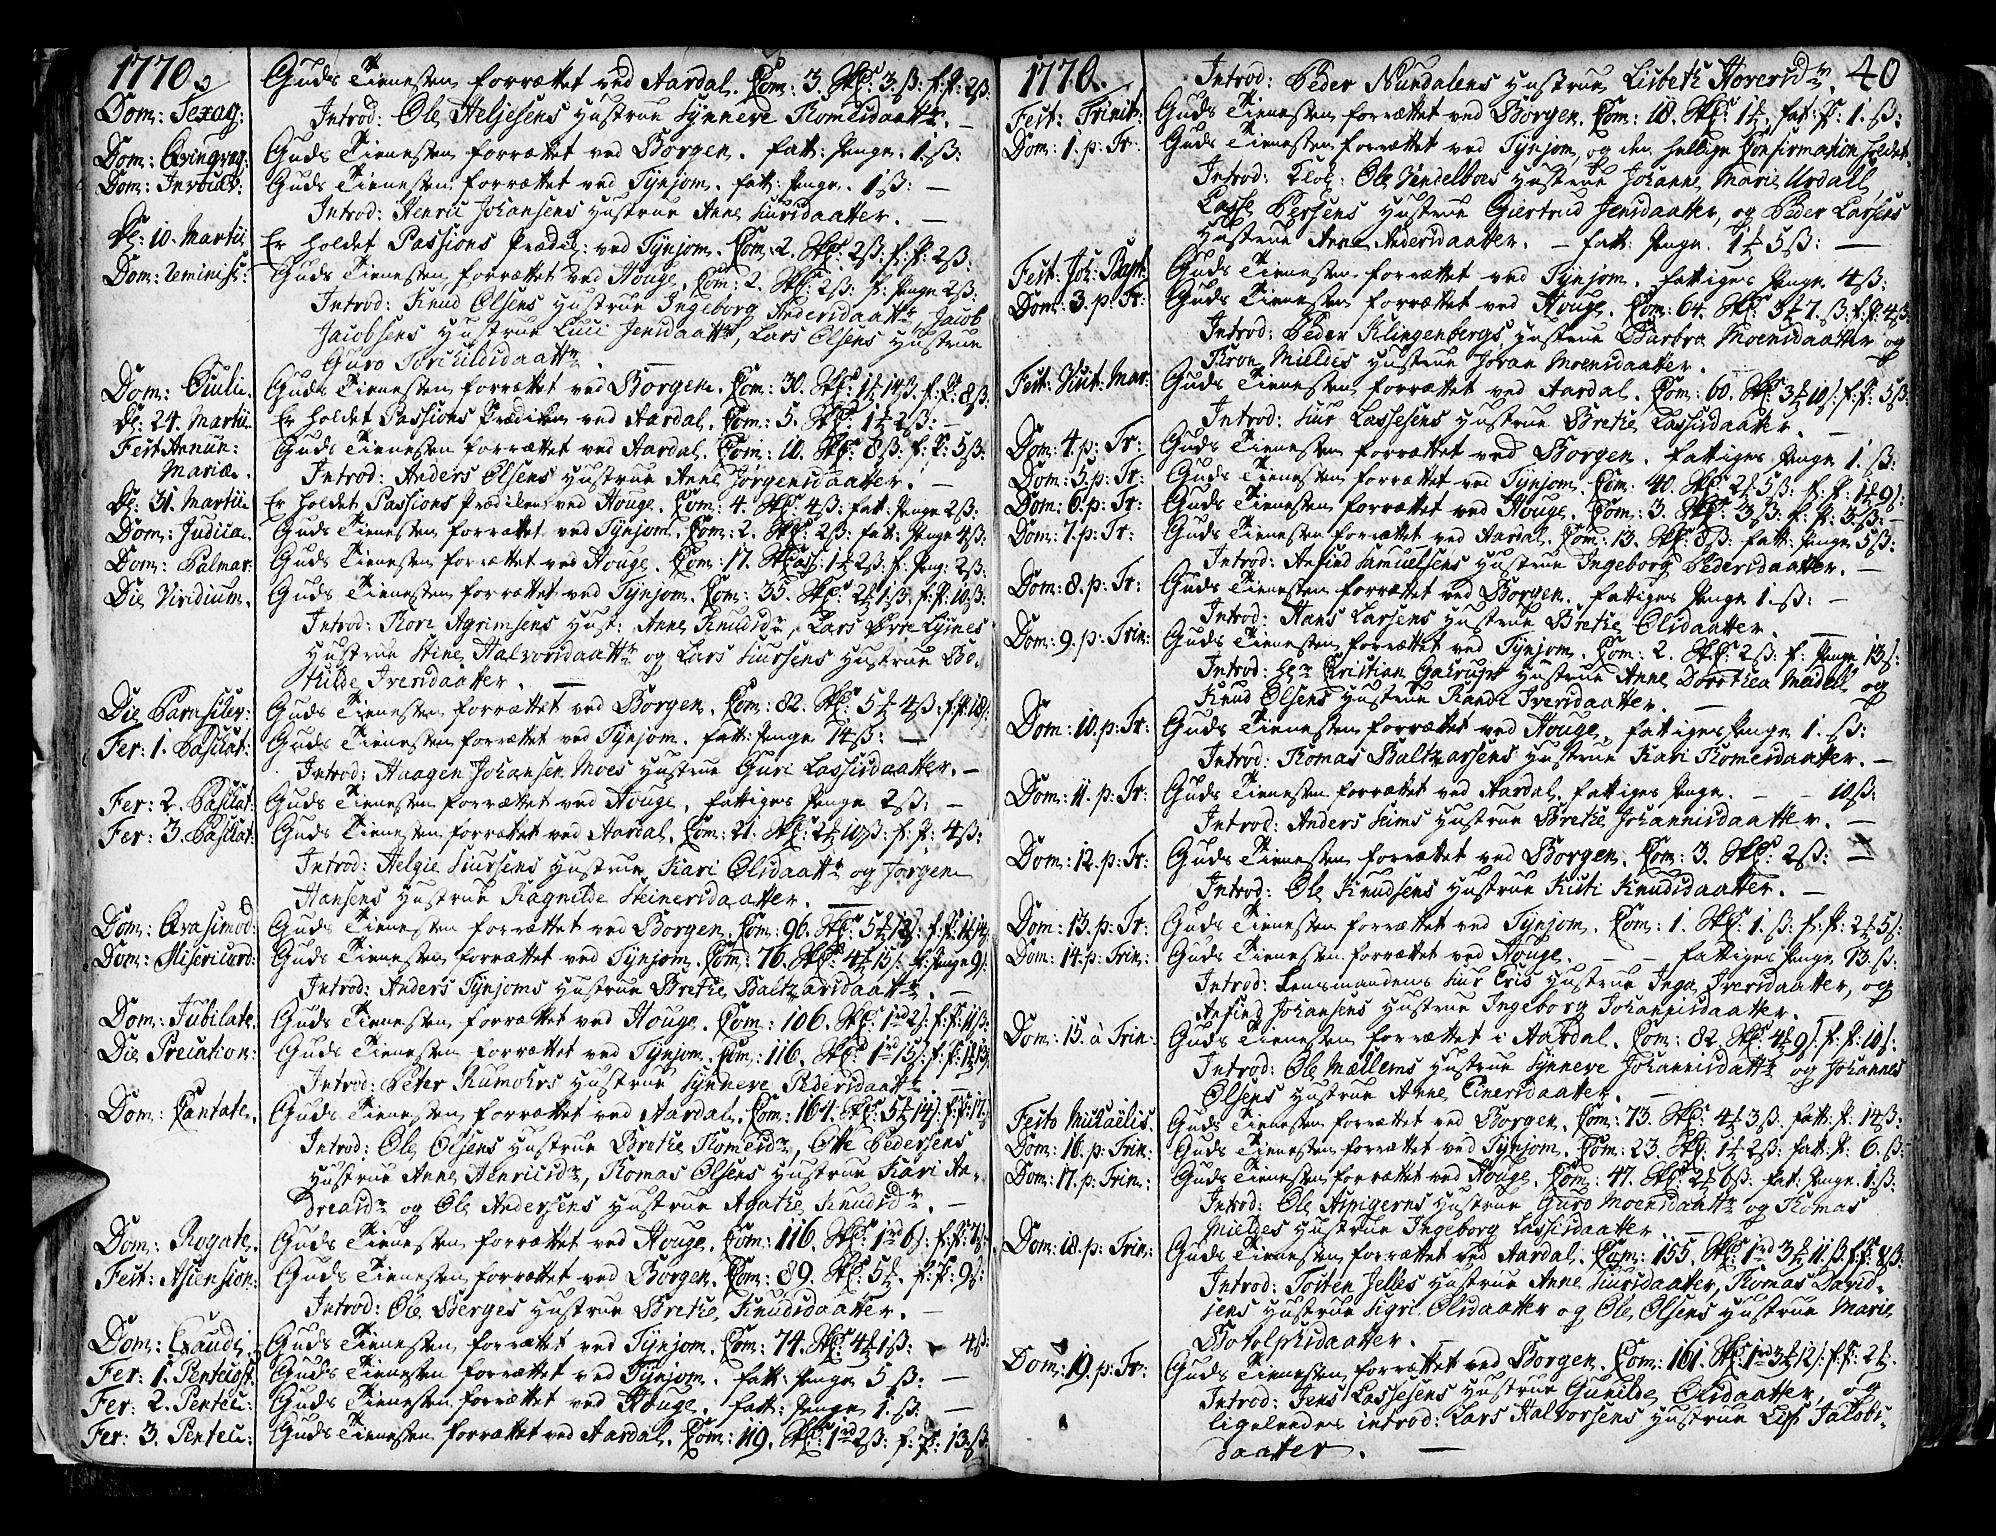 1770.
Dom: Sexag: Guds Tienesten forrættet ved Aardal. Com: 3. Skr: 3. ß. f: P: 2ß.
Introd: Ole Heljesens Hustrue Synneve Tomesdaattr. —
Dom: Qvinqvag: Guds Tienesten forrættet ved Borgen. fatt: Penge. 1. ß:
Dom: Invocav: Guds Tienesten forrættet ved Tynjom. fatt: Penge. 1ß: —
Introd: Henric Johansens Hustrue Anne Siursdaatter. —
D: 10. Martii Er holdet Passions Prædik: ved Tynjom. Com: 2. Skr: 2ß: f: P: 2ß.
Dom: Reminisc: Guds Tienesten forrættet ved Houge. Com: 2. Skr: 2ß: f: Penge 2ß:
Introd: Knud Olsens Hustrue Ingeborg Andersdaattr, Jacob
Jacobsens Hustrue Luci Jensdaattr, Lars Olsens Hustrue
Guro Torchildsdaattr. —
Dom: Oculi. Guds Tienesten forrættet ved Borgen. Com: 30. Skr: 14ß. f: P: 8ß.
D: 24. Martii Er holdet Passions Prædiken ved Aardal. Com: 5. Skr: 2ß: —
Fest: Annun: Guds Tienesten forrættet ved Aardal. Com: 10. Skr: 8ß: f: P: 5ß.
Mariæ. Introd: Anders Olsens Hustrue Anne Jørgensdaatter. —
D: 31. Martii Er holdet Passions Prædiken ved Houge. Com: 4. Skr: 4ß: fatt: Penge 2ß:
Dom: Judica. Guds Tienesten forrættet ved Tynjom. Com: 2. Skr: 2ß: fatt: Penge 4ß:
Dom: Palmar: Guds Tienesten forrættet ved Houge. Com: 17. 2ß: f: Peng: 2ß:
Die Viridium. Guds Tienesten forrættet ved Tynjom. Com: 35. Skr: 1ß: f: P: 10ß:
Introd: Tore Agrimsens Hust: Anne Knudsdr, Lars Øvre Lysnes
Hustrue Stine Halvorsdaattr og Lars Siursens Hustrue Bo-
thilde Iversdaatter. —
Die Parasciev: Guds Tienesten forrættet ved Borgen. Com: 82. Skr: 4ß f: P: 18ß:
Fer: 1. Paschat: Guds Tienesten forrættet ved Tynjom. fatt: Penge 14ß: —
Introd: Haagen Johansen Moes Hustrue Guri Lassisdaatter. —
Fer: 2. Paschat: Guds Tienesten forrættet ved Houge. fattiges Penge 2ß: —
Fer: 3. Paschat: Guds Tienesten forrættet ved Aardal. Com: 21. Skr: 10ß: f: P: 4ß:
Introd: Helgie Siursens Hustrue Kari Olsdaattr og Jørgen
Hansens Hustrue Ragnilde Steinersdaatter. —
Dom: Qvasimod: Guds Tienesten forrættet ved Borgen. Com: 96. Skr:
Dom: Misericord: Guds Tienesten forrættet ved Tynjom. Com: 76. Skr: f: Penge 9ß:
Introd: Anders Tynjoms Hustrue Brethe Baltzarsdaattr. —
Dom: Jubilate. Guds Tienesten forrættet ved Houge. Com: 106. Skr: 1rd 2ß. f: P: 11ß:
Die Precation: Guds Tienesten forrættet ved Tynjom. Com: 116. Skr: 1rd 15ß.
Introd: Peter Rumohrs Hustrue Synneve Pedersdaattr. —
Dom: Cantate. Guds Tienesten forrættet ved Aardal. Com: 164. Skr: 14ß f: P: 17.
Introd: Ole Olsens Hustrue Brethe Tomesdr, Otte Pedersens
Hustrue Anne Henricsdr, Thomas Olsens Hustrue Kari An-
dreasdr og Ole Andersens Hustrue Agathe Knudsdr. —
Dom: Rogate. Guds Tienesten forrættet ved Houge. Com: 116. Skr: 1rd 6ß: f: P: 7ß:
Fest: Ascension: Guds Tienesten forrættet ved Borgen. Com: 89. Skr: f: P: 9ß:
Introd: Ole Berges Hustrue Brethe Knudsdaatter. —
Dom: Exaudi. Guds Tienesten forrættet ved Tynjom. Com: 74. Skr: 1ß: 4ß:
Fer: 1. Pentecost: Guds Tienesten forrættet ved Tynjom. fatt: Penge 5 ß: —
Fer: 2. Pentec: Guds Tienesten forrættet ved Houge. fatt: Penge 1. ß: —
Fer: 3. Pentec: Guds Tienesten forrættet ved Aardal. Com: 119. Skr: 1rd 2ß: f: P: 13ß:
1770. 40
Introd: Peder Nundalens Hustrue Lisbeth Sioversdr.
Fest: Trinit: Guds Tienesten forrættet ved Borgen. Com: 18. Skr: fat: P: 1. ß:
Dom: 1. p: Tr: Guds Tienesten forrættet ved Tynjom, og den hellige Confirmation holdet.
Introd: Klok: Ole Vindelboes Hustrue Johanne Marie Urdall,
Lasse Persens Hustrue Giertrud Jensdaatter, og Peder Larsens
Hustrue Anne Andersdaatter. — fatt: Penge 5ß: —
Fest: Joh: Bapt: Guds Tienesten forrættet ved Tynjom. fattiges Penge 4ß:
Dom: 3. p: Tr: Guds Tienesten forrættet ved Houge. Com: 64. Skr: 7. ß: f: P: 4ß:
Introd: Peder Klingenbergs Hustrue Barbra Moensdaatter og
Tron Mieldes Hustrue Joran Moensdaatter.
Fest: Visit: Mar: Guds Tienesten forrættet ved Aardal. Com: 60. Skr: 10ß: f: P: 5ß:
Introd: Siur Lassesens Hustrue Brethe Lassisdaatter. —
Dom: 4. p: Tr: Guds Tienesten forrættet ved Borgen. fattiges Penge 1. ß:
Dom: 5. p: Tr: Guds Tienesten forrættet ved Tynjom. Com: 40. Skr: 5ß: f: P: 9ß:
Dom: 6. p: Tr: Guds Tienesten forrættet ved Houge. Com: 3. Skr: 3ß: f: P: 3ß: —
Dom: 7. p: Tr: Guds Tienesten forrættet ved Aardal. Com: 13. Skr: 8ß: fatt: Penge 5ß:
Introd: Anfind Samuelsens Hustrue Ingeborg Pedersdaatter. —
Dom: 8. p: Tr: Guds Tienesten forrættet ved Borgen. fattiges Penge 1. ß: —
Introd: Hans Larsens Hustrue Brethe Olsdaatter. —
Dom: 9. p: Trin: Guds Tienesten forrættet ved Tynjom. Com: 2. Skr: 2ß: f: Penge 13ß:
Introd: Hr Christian Gaarups Hustrue Anne Dorothea Meidell og
Knud Olsens Hustrue Randi Iversdaatter. —
Dom: 10. p: Tr: Guds Tienesten forrættet ved Houge. fattiges Penge 1. ß:
Introd: Thomas Baltzarsens Hustrue Kari Tomesdaatter. —
Dom: 11. p: Tr: Guds Tienesten forrættet ved Aardal. fattiges Penge. — — 10ß:
Introd: Anders Seims Hustrue Brethe Johannisdaatter. —
Dom: 12. p: Tr: Guds Tienesten forrættet ved Borgen. Com: 3. Skr: 2ß: —
Introd: Ole Knudsens Hustrue Kisti Knudsdaatter. —
Dom: 13. p: Tr: Guds Tienesten forrættet ved Tynjom. Com: 1. Skr: 1. ß: f: P: 5ß:
Dom: 14. p: Trin: Guds Tienesten forrættet ved Houge. — — fattiges Penge 13. ß:
Introd: Lensmandens Siur Eris Hustrue Inga Iversdaatter, og
Anfind Johansens Hustrue Ingeborg Johannisdaatter. —
Dom: 15. à Trin: Guds Tienesten forrættet i Aardal. Com: 82. Skr: 9ß. f: P: 10ß:
Introd: Ole Mællems Hustrue Synneve Johannisdattr og Johannes
Olsens Hustrue Anne Einersdaatter. —
Festo Michaelis. Guds Tienesten forrættet ved Borgen. Com: 73. Skr: 3ß. fatt: P: 14ß:
Dom: 16. p: Trin: Guds Tienesten forrættet ved Tynjom. Com: 23. Skr: 2ß: fatt: P: 6. ß:
Dom: 17. p: Trin: Guds Tienesten forrættet ved Houge. Com: 47. Skr: 6ß. fat: Penge. 1. ß:
Introd: Ole Aspigerns Hustrue Guro Moensdaattr og Thomas
Mieldes Hustrue Ingeborg Lassisdaatter. —
Dom: 18. p: Trin: Guds Tienesten forrættet ved Aardal. Com: 155. Skr: 11ß. f: P: 8ß:
Introd: Tosten Jelles Hustrue Anne Siursdaatter, Thomas David-
sens Hustrue Sigri Olsdaatter og Ole Olsens Hustrue Marie
Botolphsdaatter. —
Dom: 19. p: Tr: Guds Tienesten forrættet ved Borgen. Com: 161. Skr: 12ß.
Introd: Jens Lassesens Hustrue Gunilde Olsdaatter, og
ligeledes introd: Lars Halvorsens Hustrue Lisb Jacobs-
daatter. —